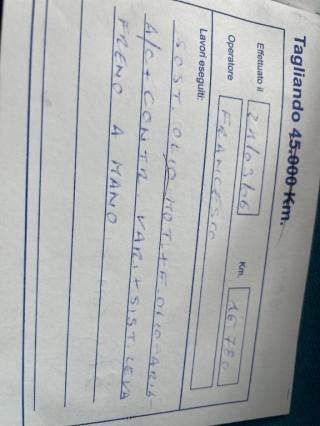 Tagliando 45.000 Km.
Effettuato il 21/09/16 Km. 16780
Operatore FRANCESCO
Lavori eseguiti:
SOST. OLIO MOT. + F. OLIO - ARIA -
A/C + CONTR VARI + SIST. LEVA
FRENO A MANO